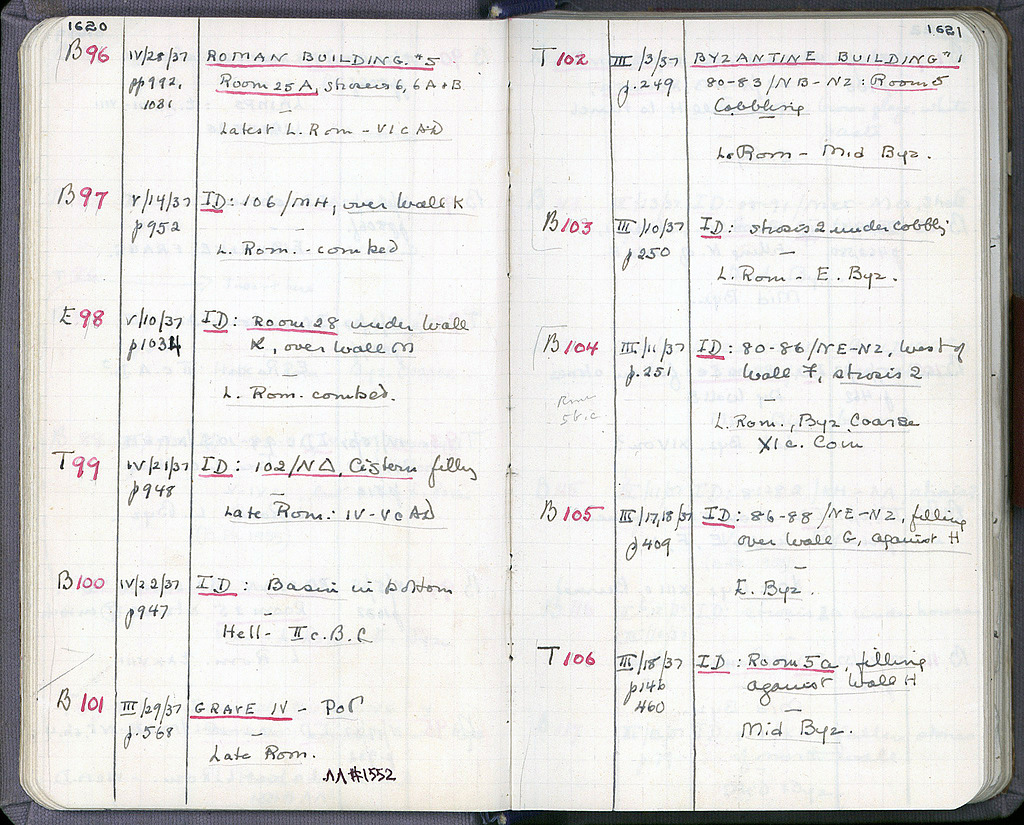 1620
B96 IV/28/37 ROMAN BUILDING #5
pp992, Room 25A, strosis 6, 6A+B
1031
Latest L. Rom - VI c AD
B97 V/14/37 ID: 106/MH, over wall K
p952
L. Rom. - combed
E98 V/10/37 ID: Room 28 under wall
p1034 K, over wall M
L. Rom. combed.
T99 IV/21/37 ID: 102/NΔ, Cistern filling
p948
Late Rom.: IV-V c AD
B100 IV/22/37 ID: Basin in bottom
p947
Hell- II c. B.C
B101 III/29/37 GRAVE IV - Pot
p.568
Late Rom.
ΛΛ#1552
1621
T102 III/3/37 BYZANTINE BUILDING #1
p.249 80-83/NB-NZ: Room 5
Cobbling
L. Rom - Mid Byz.
B103 III/10/37 ID: strosis 2 under cobbl'g
p250
L. Rom - E. Byz.
B104 III/11/37 ID: 80-86/NE-NZ, west of
p.251 wall F, strosis 2
L. Rom., Byz Coarse
XI c. Coin
B105 III/17,18/37 ID: 86-88/NE-NZ, filling
p409 over wall G, against H
E. Byz.
T106 III/18/37 ID: Room 5a, filling
p146 against wall H
460
Mid Byz.